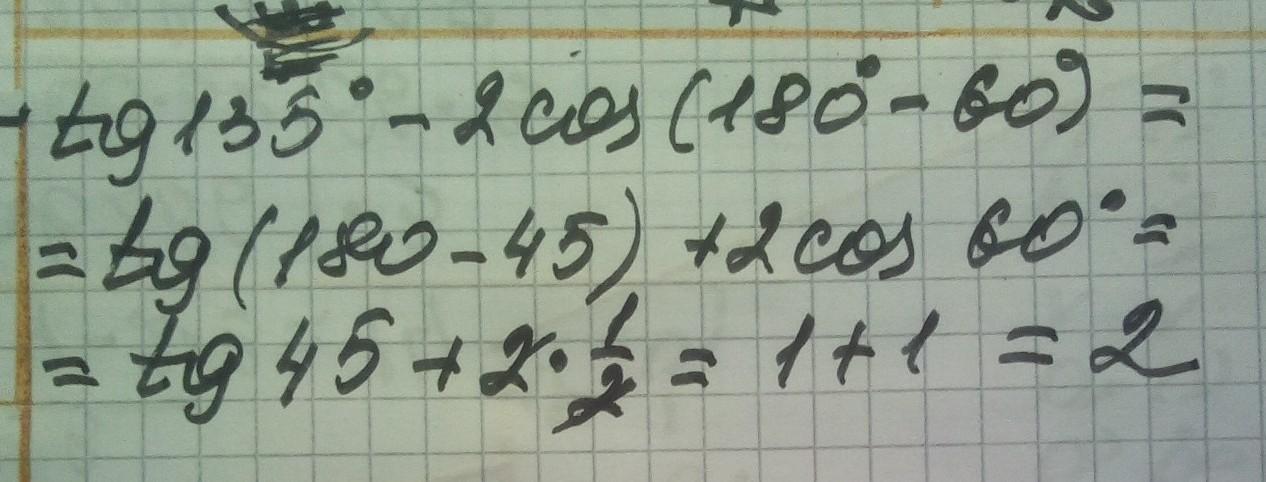 tg 135° - 2 cos (180° - 60°) =
= tg (180 - 45) + 2 cos 60° =
= tg 45 + 2 · 1/2 = 1 + 1 = 2